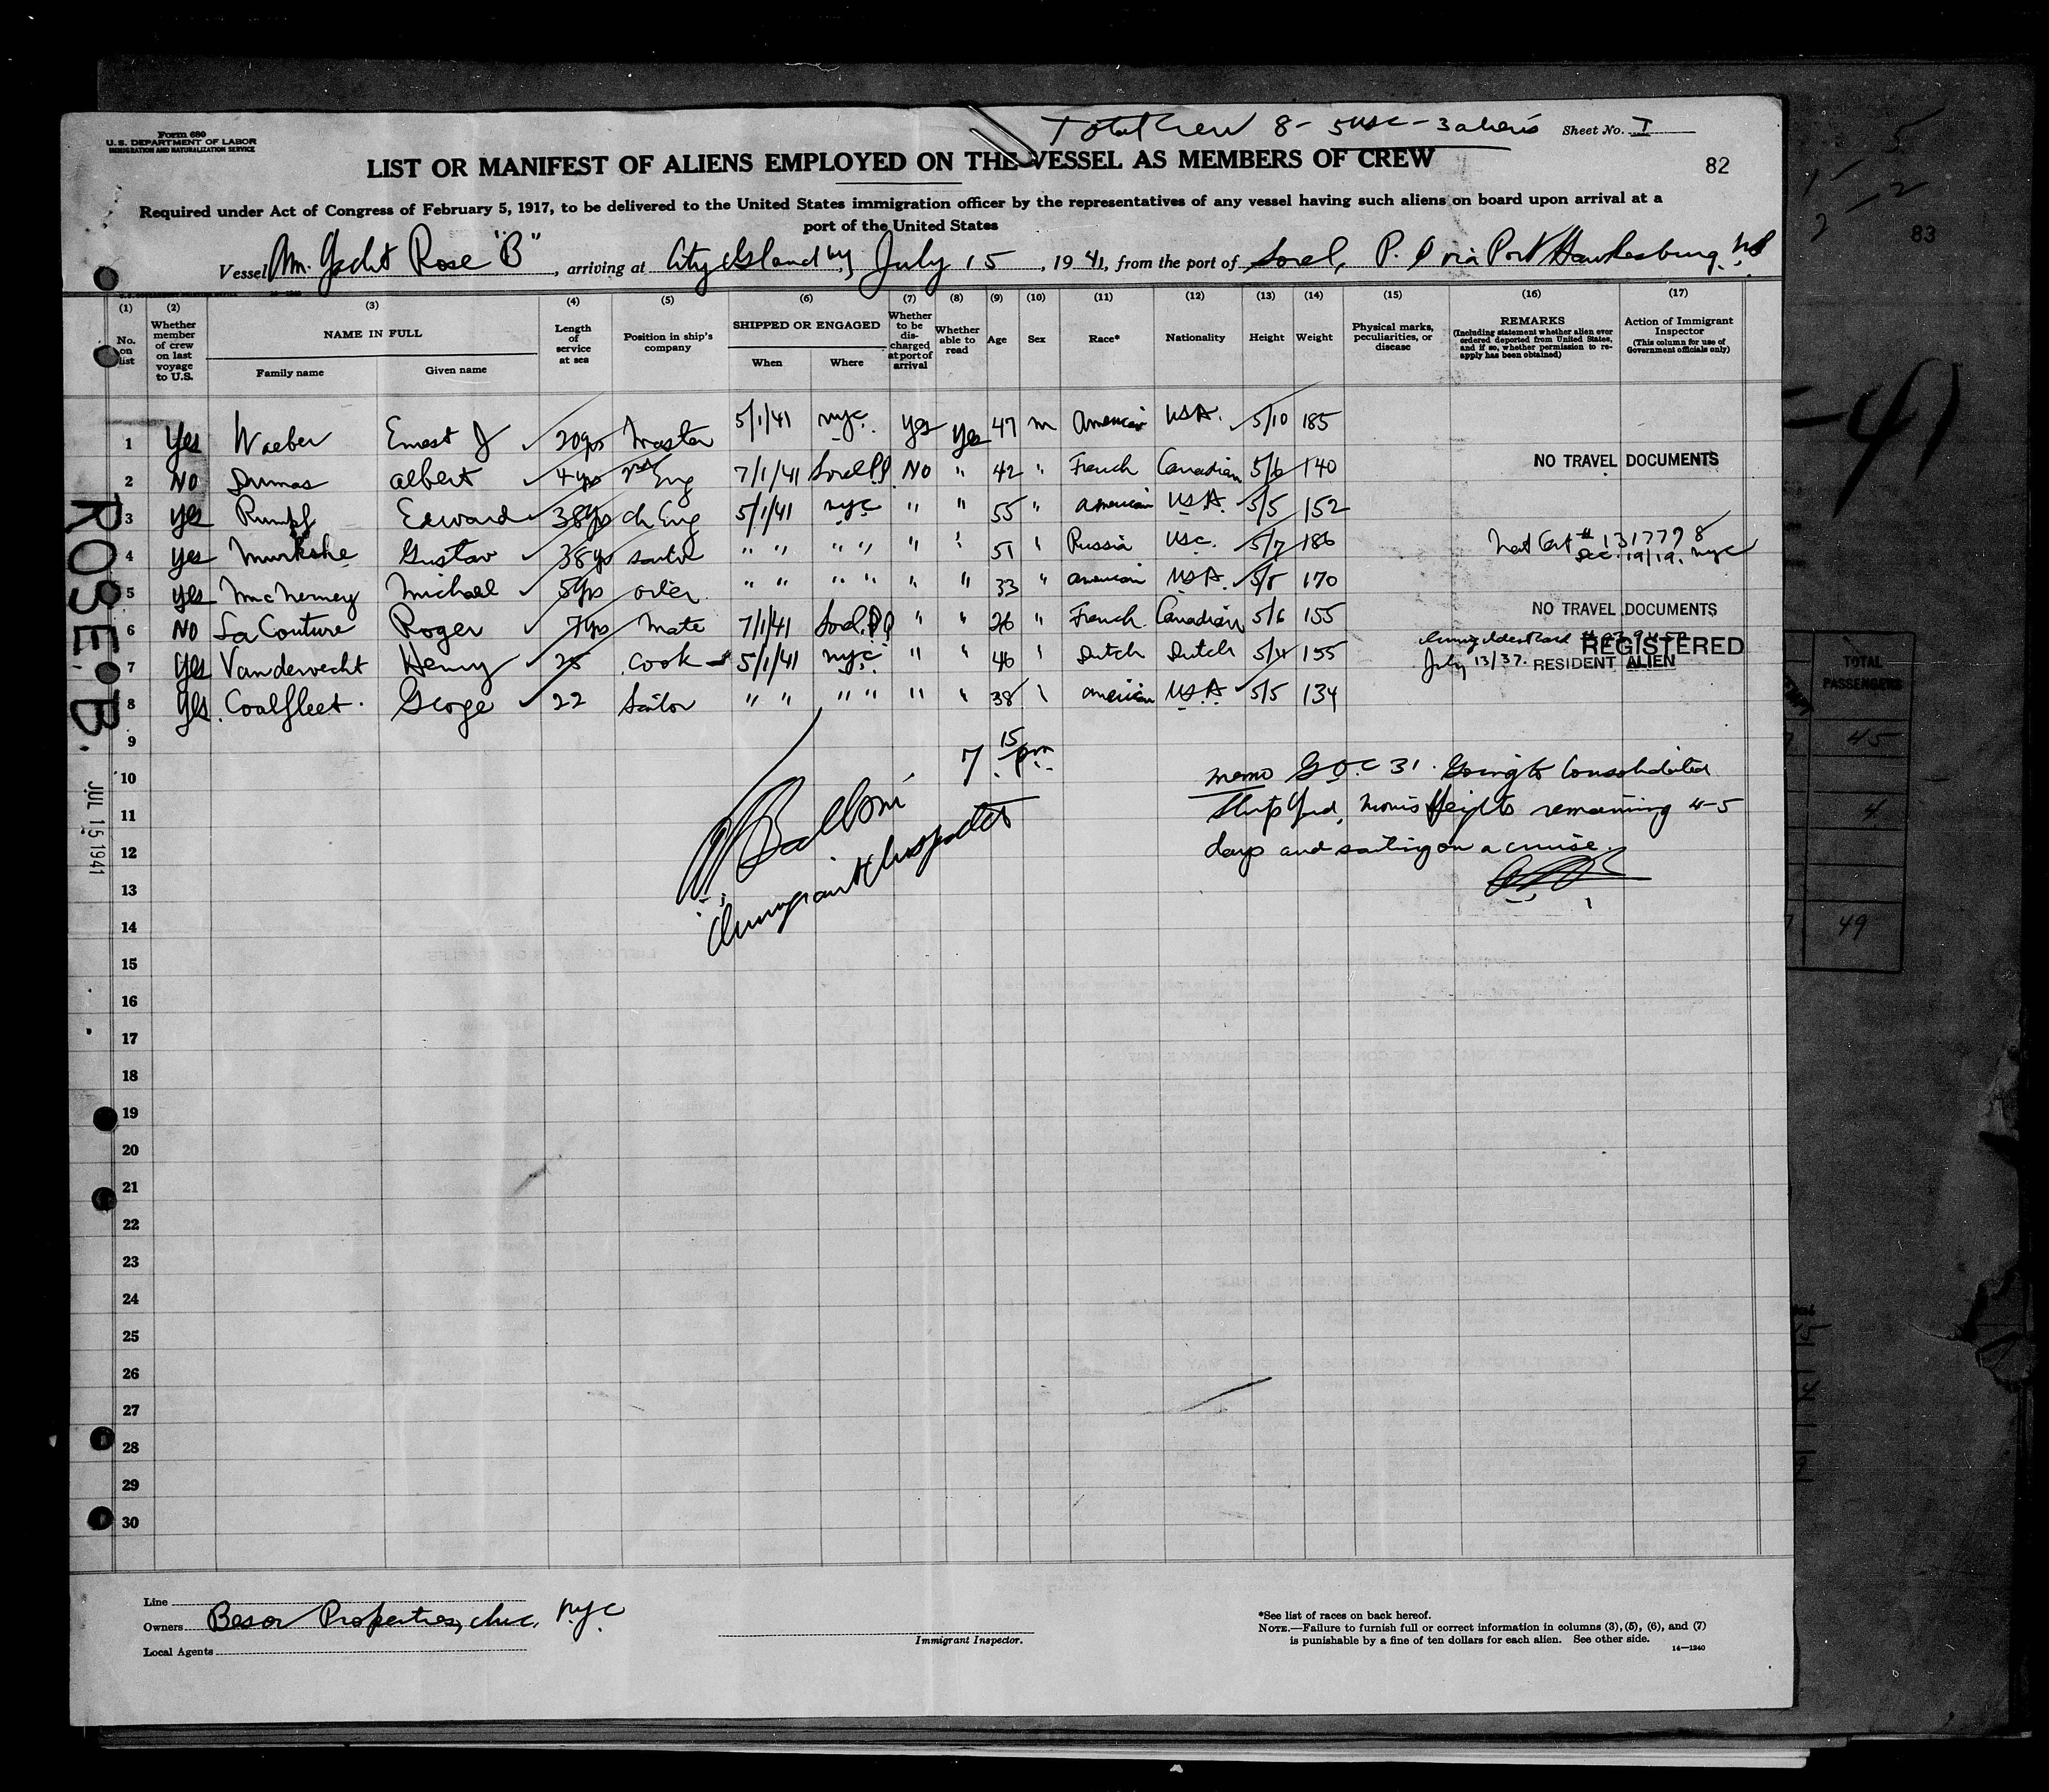 Form 680
U. S. DEPARTMENT OF LABOR
IMMIGRATION AND NATURALIZATION SERVICE
Total Crew 8 - 5 USC - 3 aliens Sheet No. I
LIST OR MANIFEST OF ALIENS EMPLOYED ON THE VESSEL AS MEMBERS OF CREW
82
83
Required under Act of Congress of February 5, 1917, to be delivered to the United States immigration officer by the representatives of any vessel having such aliens on board upon arrival at a
port of the United States
Vessel Am. Yacht Rose "B", arriving at City Island NY July 15, 1941, from the port of Sorel, P. Q via Port Hawkesbury. N.S
(1) (2) (3) (4) (5) (6) (7) (8) (9) (10) (11) (12) (13) (14) (15) (16) (17)
No. on list
Whether member of crew on last voyage to U.S.
NAME IN FULL
Family name
Given name
Length of service at sea
Position in ship's company
SHIPPED OR ENGAGED
When
Where
Whether to be discharged at port of arrival
Whether able to read
Age
Sex
Race*
Nationality
Height
Weight
Physical marks, peculiarities, or disease
REMARKS
(Including statement whether alien ever ordered deported from United States, and if so, whether permission to reapply has been obtained)
Action of Immigrant Inspector
(This column for use of Government officials only)
1 Yes Waeber Ernest J 20yrs Master 5/1/41 nyc. Yes Yes 47 m American USA. 5/10 185
2 No Dumas Albert 4yrs Eng 7/1/41 Sorel P.Q. No " 42 " French Canadian 5/6 140 NO TRAVEL DOCUMENTS
3 Yes Rumpf Edward 38yrs ch Eng 5/1/41 nyc " " 55 " American USA. 5/5 152
4 Yes Gustav 38yrs sailor " " " " " " 51 " Russia USC. 5/7 186 Nat Cert # 1317798
Dec. 19/19. nyc
5 Yes McNerney Michael 5yrs oiler " " " " " " 33 " American USA. 5/5 170
6 No LaCouture Roger 7yrs Mate 7/1/41 Sorel P Q " " 26 " French Canadian 5/6 155 NO TRAVEL DOCUMENTS
7 Yes Vandervecht Henry 25 Cook 5/1/41 nyc " " 46 " Dutch Dutch 5/4 155 July 13/37. REGISTERED
RESIDENT ALIEN
8 Yes. Coalfleet George 22 Sailor " " " " " " 38 " American USA 5/5 134
9
10
11
12
13
14
15
16
17
18
19
20
21
22
23
24
25
26
27
28
29
30
7 15 pm
Immigrant Inspector
memo G.O.C 31. Going to Consolidated
Ship Yard, Morris Heights remaining 4-5
days and sailing on a cruise.
ROSE B.
JUL 15 1941
Line
Owners Besor Properties, Inc. nyc
Local Agents
Immigrant Inspector.
*See list of races on back hereof.
NOTE.—Failure to furnish full or correct information in columns (3), (5), (6), and (7)
is punishable by a fine of ten dollars for each alien. See other side.
14—1240
TOTAL
PASSENGERS
45
4
49